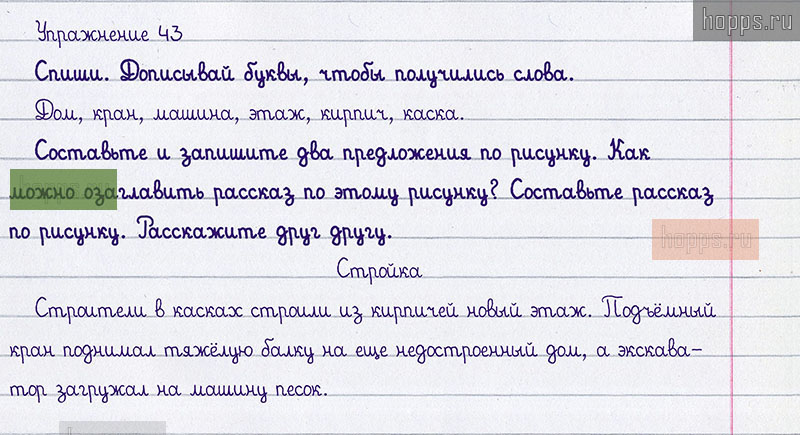 hopps.ru
Упражнение 43
Спиши. Дописывай буквы, чтобы получились слова.
Дом, кран, машина, этаж, кирпич, каска.
Составьте и запишите два предложения по рисунку. Как
можно озаглавить рассказ по этому рисунку? Составьте рассказ
hopps.ru
по рисунку. Расскажите друг другу.
Стройка
Строители в касках строили из кирпичей новый этаж. Подъёмный
кран поднимал тяжёлую балку на еще недостроенный дом, а экскава-
тор загружал на машину песок.